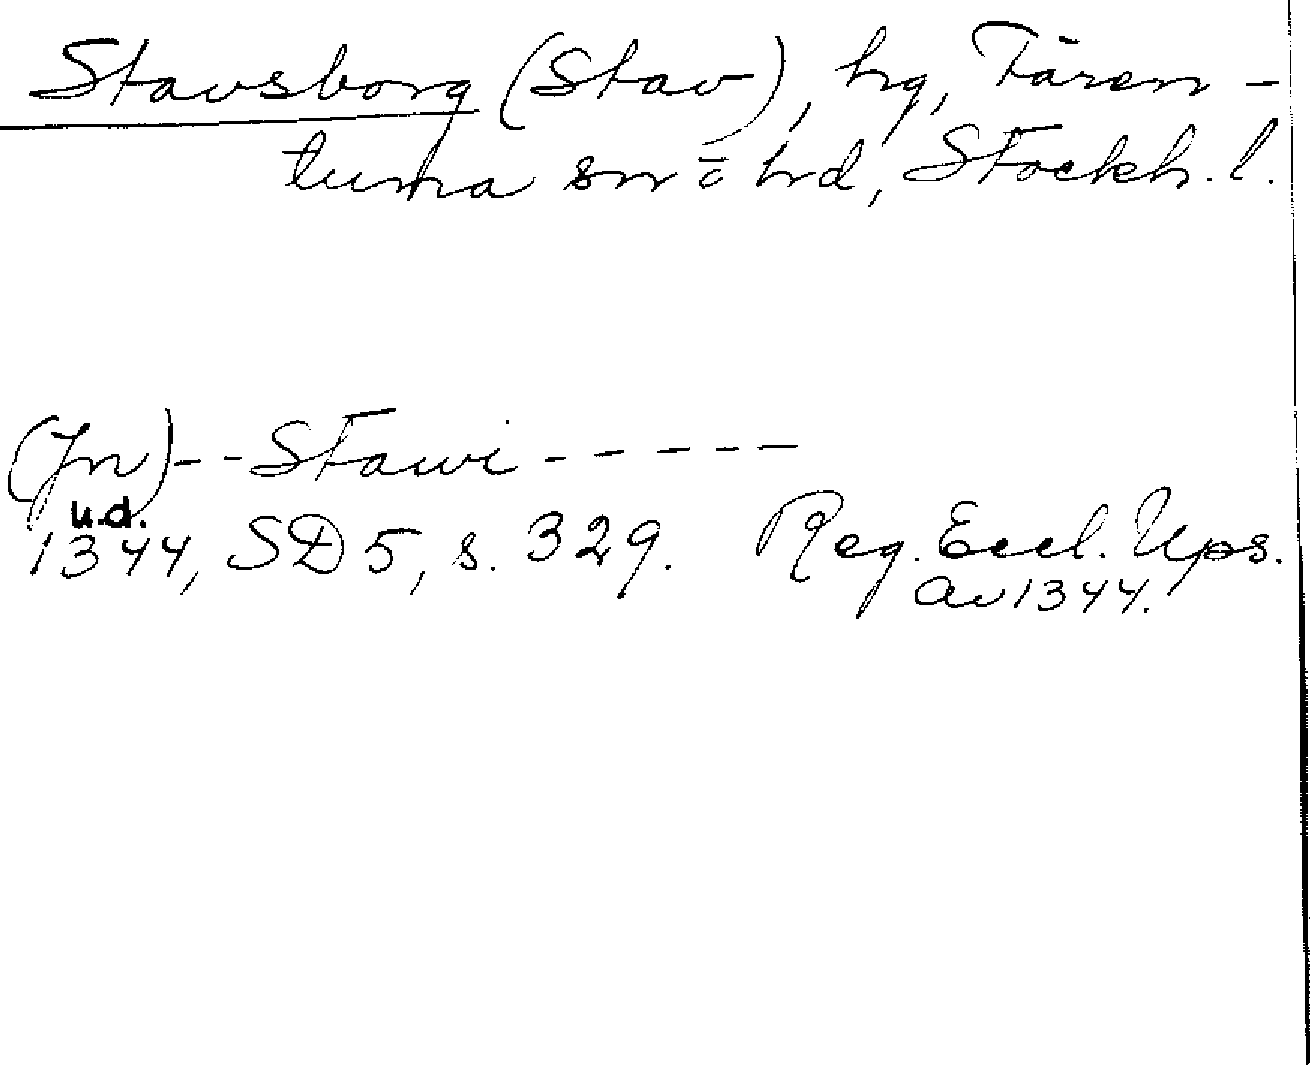 Stavsborg (Stav), hg, Fären-
tuna sn o hd, Stockh. l.
(Jn)--Stawi------
u.d.
1344, SD 5, s. 329. Reg. Eccl. Ups.
av 1344.